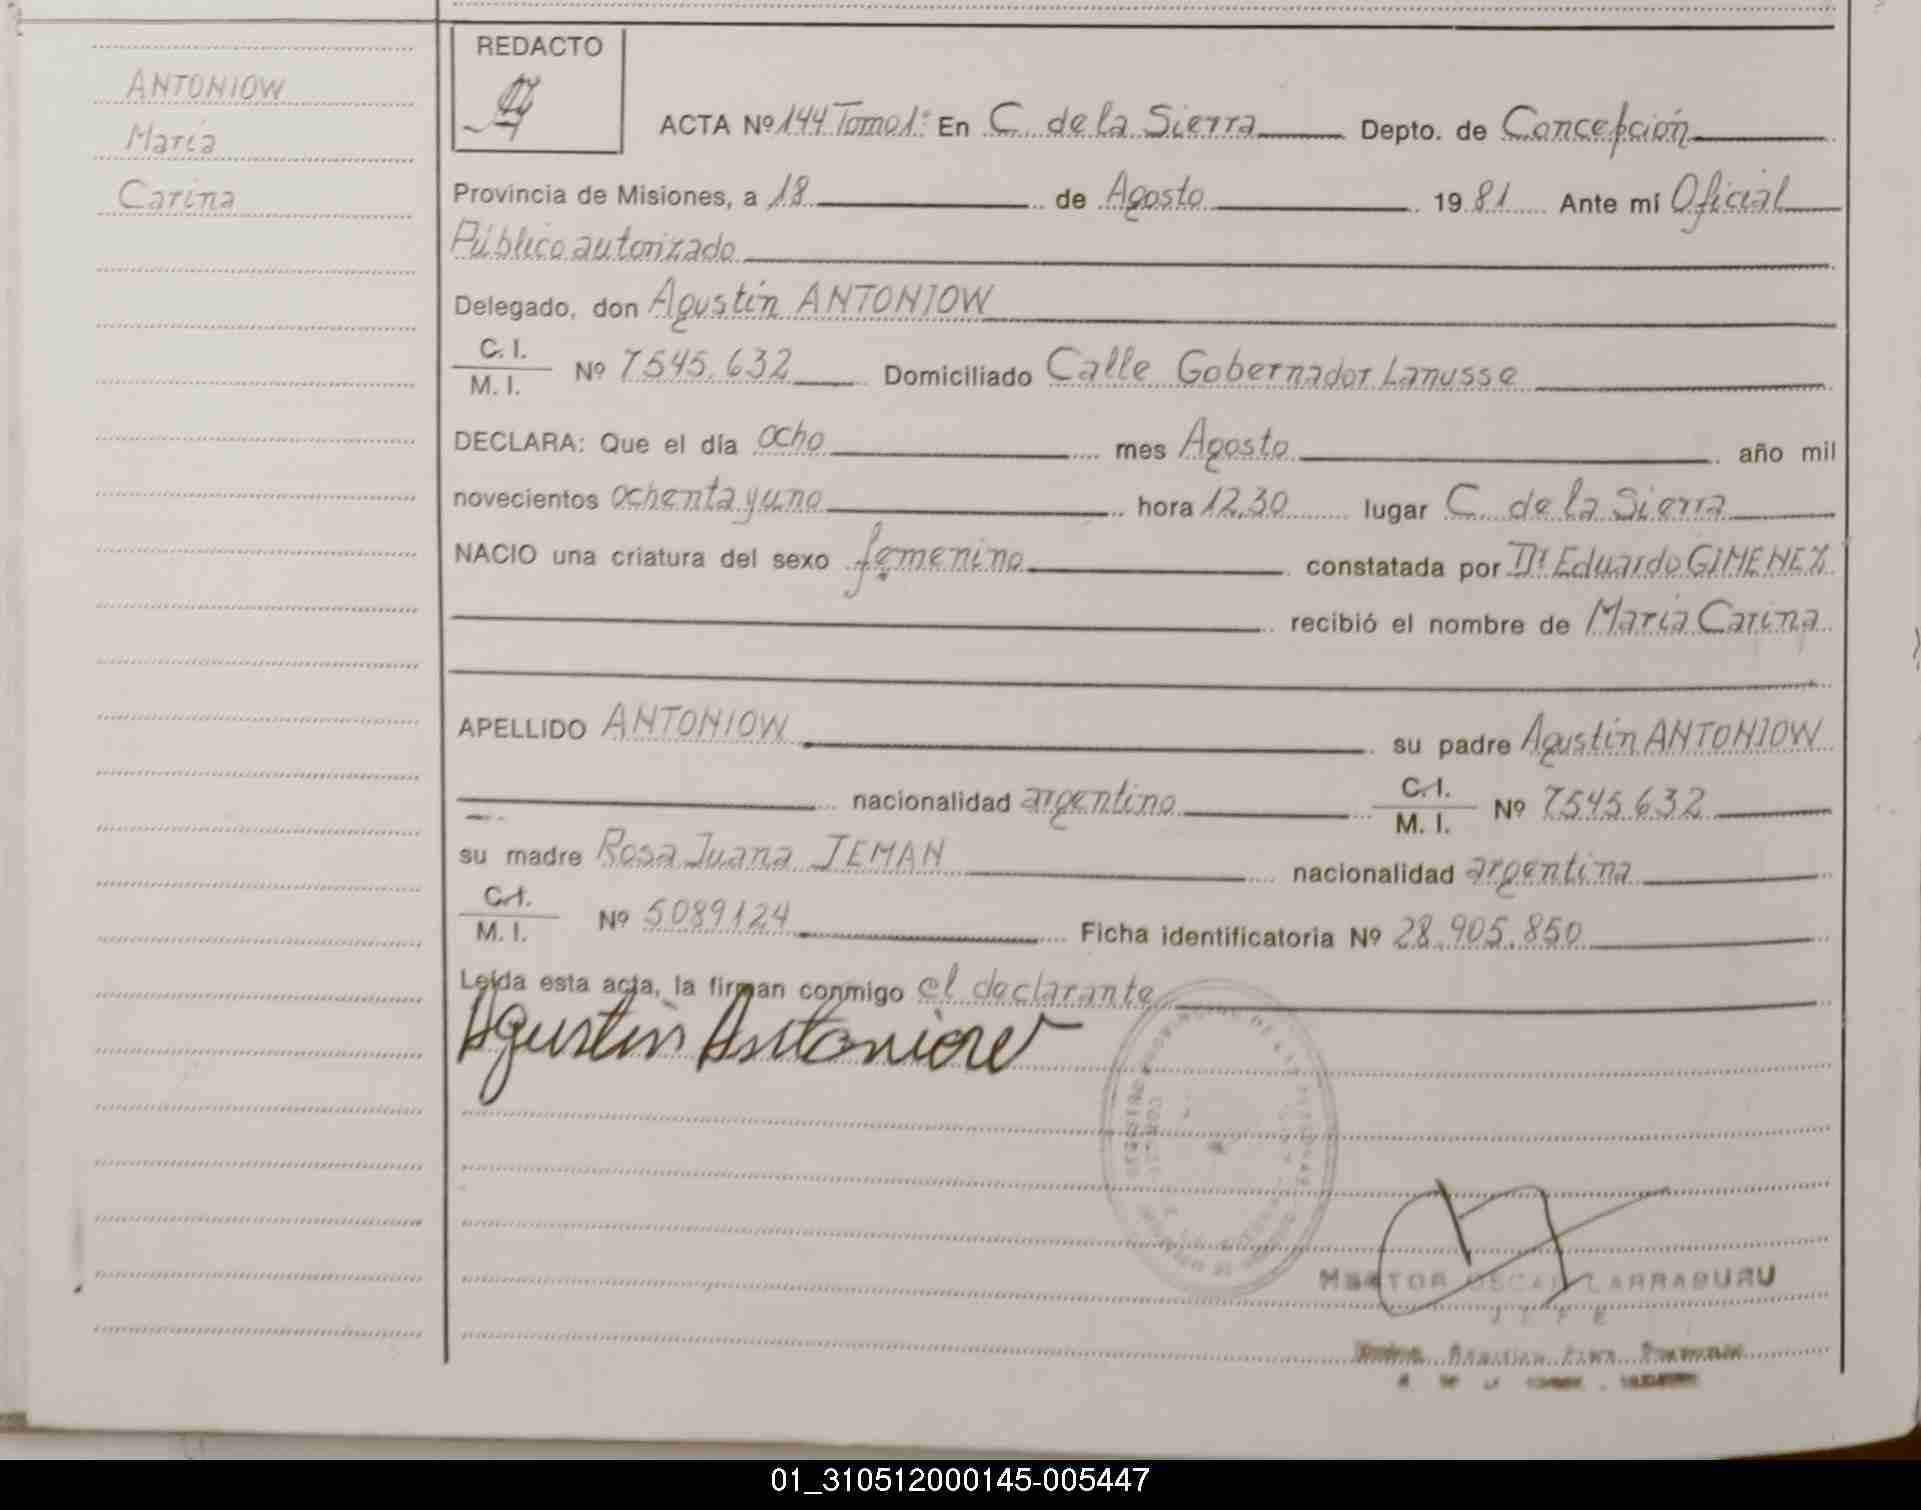 ANTONIOW
María
Carina
REDACTO
ACTA Nº 144 Tomo 1º En C. de la Sierra Depto. de Concepción
Provincia de Misiones, a 18 de Agosto 1981 Ante mí Oficial
Público autorizado
Delegado, don Agustín ANTONIOW
C. I.
M. I.
Nº 7545.632 Domiciliado Calle Gobernador Lanusse
DECLARA: Que el día ocho mes Agosto año mil
novecientos ochenta y uno hora 12,30 lugar C. de la Sierra
NACIO una criatura del sexo femenino constatada por Dr Eduardo GIMENEZ
recibió el nombre de María Carina
APELLIDO ANTONIOW su padre Agustín ANTONIOW
nacionalidad argentino C. I.
M. I.
Nº 7545.632
su madre Rosa Juana JEMAN nacionalidad argentina
C. I.
M. I.
Nº 5089124 Ficha identificatoria Nº 28.905.850
Leída esta acta, la firman conmigo el declarante
Agustín Antoniow
OSCAR LARRABURU
JEFE
01_310512000145-005447